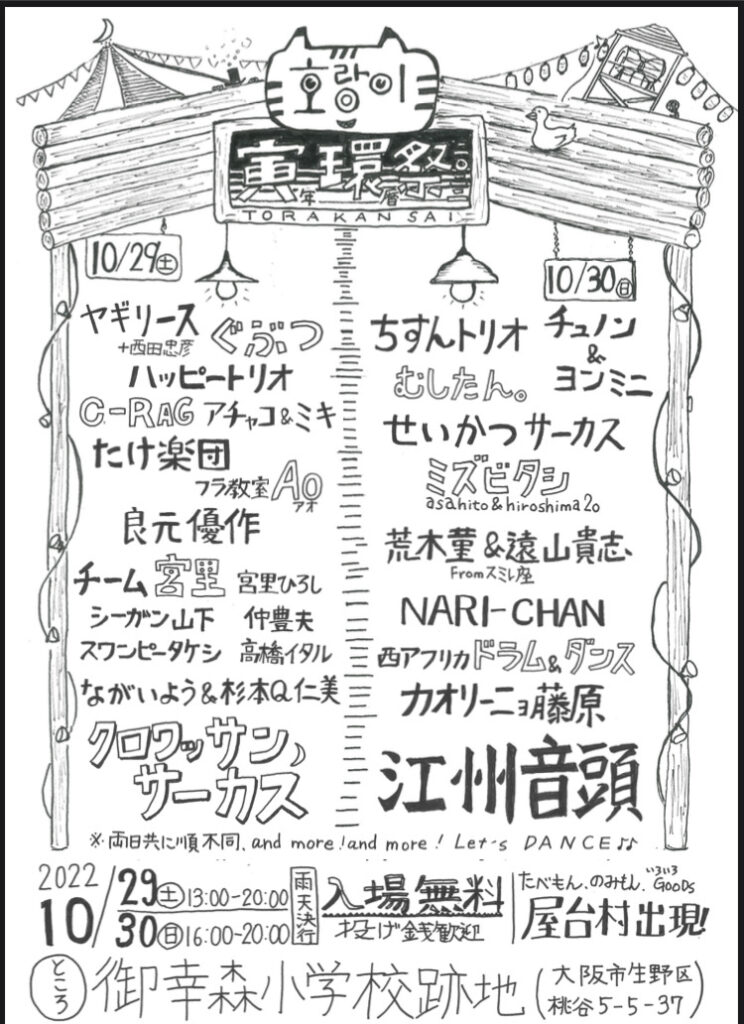 호랑이
寅環祭。
年暦
TORAKANSAI
10/29㊏
ヤギリース
+西田忠彦
ぐぶつ
ハッピートリオ
C-RAG アチャコ&ミキ
たけ楽団
フラ教室 AO
アオ
良元優作
チーム宮里 宮里ひろし
シーガン山下 仲豊夫
スワンピータケシ 高橋イタル
ながいよう&杉本Q仁美
クロワッサン♪
サーカス
10/30㊐
ちすんトリオ
チュノン
&
ヨンミニ
むしたん。
せいかつサーカス
ミズビタシ
asahito&hiroshima20
荒木菫&遠山貴志
Fromスミレ座
NARI-CHAN
西アフリカドラム&ダンス
カオリーニョ藤原
江州音頭
※両日共に順不同、and more!and more! Let's DANCE♪♪
2022
10/29㊏13:00-20:00
30㊐16:00-20:00
雨天決行
入場無料
投げ銭歓迎
たべもん、のみもん、いろいろGooDs
屋台村出現!
ところ 御幸森小学校跡地(大阪市生野区
桃谷5-5-37)